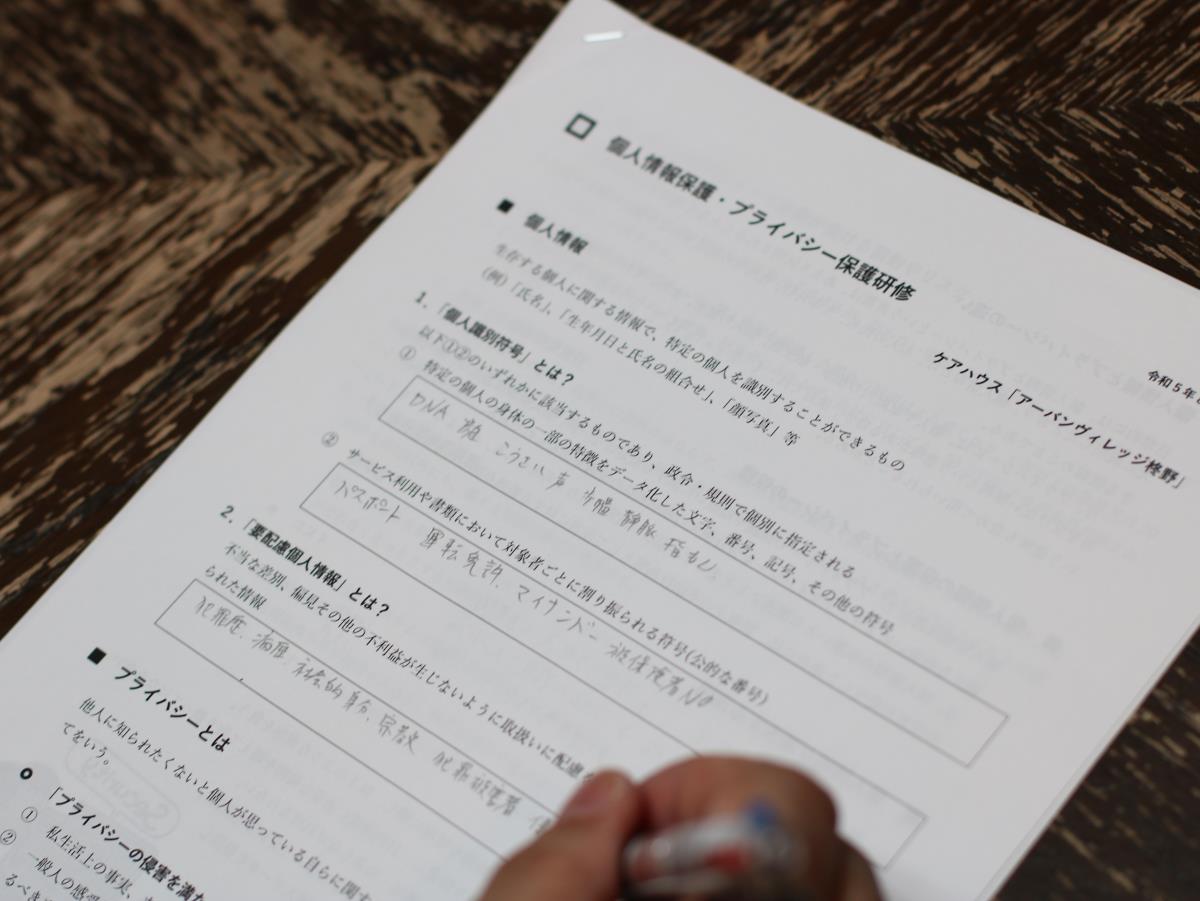 □ 個人情報保護・プライバシー保護研修
令和5年
ケアハウス「アーバンヴィレッジ柊野」
■ 個人情報
生存する個人に関する情報で、特定の個人を識別することができるもの
(例)「氏名」、「生年月日と氏名の組合せ」、「顔写真」等
1.「個人識別符号」とは?
以下①②のいずれかに該当するものであり、政令・規則で個別に指定される
① 特定の個人の身体の一部の特徴をデータ化した文字、番号、記号、その他の符号
DNA 顔 こうさい 声 歩幅 静脈 指もん
② サービス利用や書類において対象者ごとに割り振られる符号(公的な番号)
パスポート 運転免許、マイナンバー 被保険者No
2.「要配慮個人情報」とは?
不当な差別、偏見その他の不利益が生じないように取扱いに配慮
られた情報
犯罪歴、病歴、社会的身分、宗教 犯罪被害者
■ プライバシーとは
他人に知られたくないと個人が思っている自らに関す
てをいう。
○「プライバシーの侵害を満た
① 私生活上の事実、
② 一般人の感受
るべき